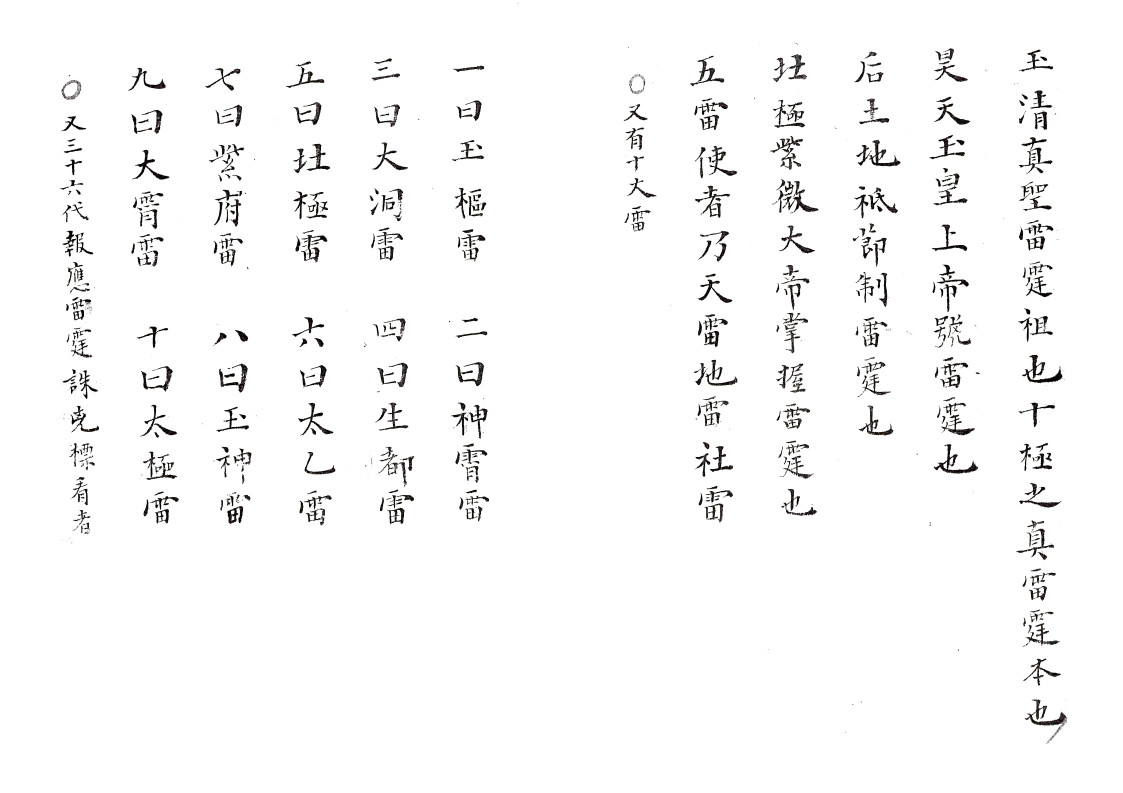 玉清真聖雷霆祖也十極之真雷霆本也
昊天玉皇上帝號雷霆也
后土地祇節制雷霆也
北極紫微大帝掌握雷霆也
五雷使者乃天雷地雷社雷
○又有十大雷
一曰玉樞雷 二曰神霄雷
三曰大洞雷 四曰生都雷
五曰北極雷 六曰太乙雷
七曰紫府雷 八曰玉神雷
九曰大霄雷 十曰太極雷
○又三十六代報應雷霆誅兇標看者